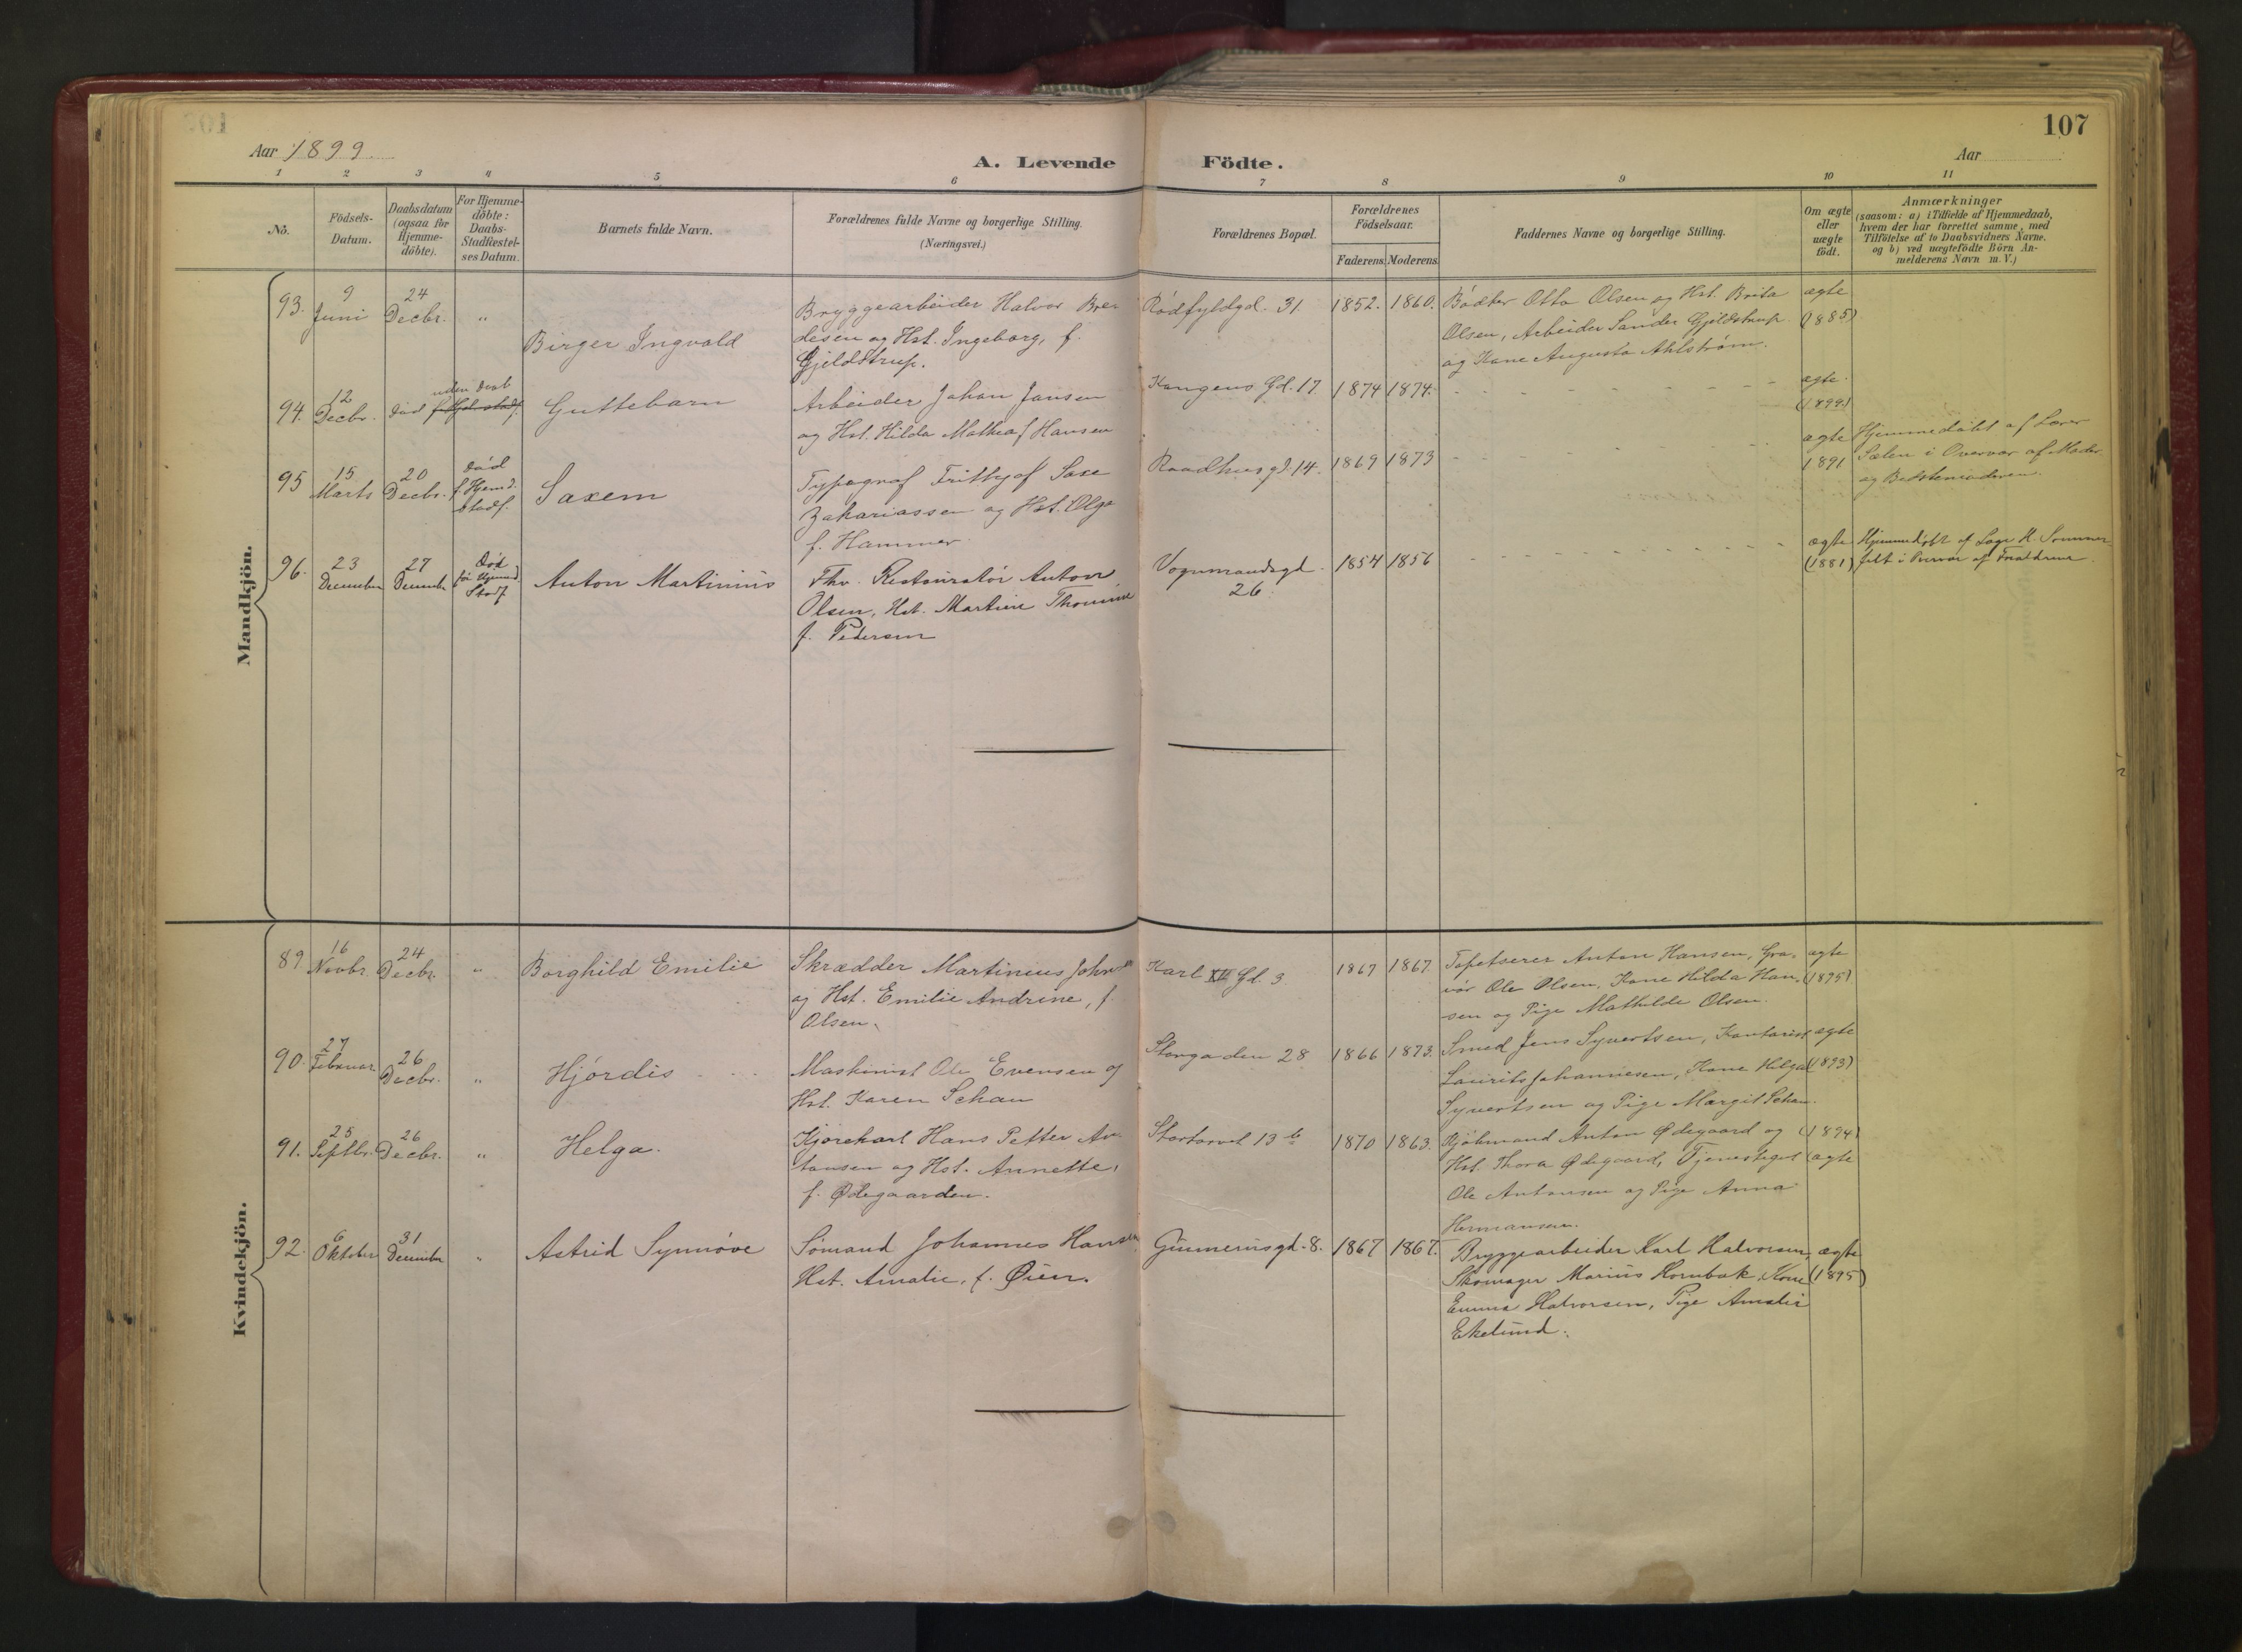 107
Aar 1899.
A. Levende Födte.
Aar
1 2 3 4 5 6 7 8 9 10 11
No.
Födsels-
Datum.
Daabsdatum
(ogsaa for
Hjemme-
döbte).
For Hjemme-
döbte:
Daabs-
Stadfæstel-
ses Datum.
Barnets fulde Navn.
Forældrenes fulde Navne og borgerlige Stilling.
(Næringsvei.)
Forældrenes Bopæl.
Forældrenes
Födselsaar.
Faderens. Moderens.
Faddernes Navne og borgerlige Stilling.
Om ægte
eller
uægte
födt.
Anmærkninger
(saasom: a) i Tilfælde af Hjemmedaab,
hvem der har forrettet samme, med
Tilföielse af to Daabsvidners Navne.
og b) ved uægtefödte Börn An-
melderens Navn m. V.)
Mandkjön.
93.
9
Juni
24
Decbr.
"
Birger Ingvald
Bryggearbeider Halvor Bren
desen og Hst. Ingeborg, f.
Gjeldstrup.
Rødfyldgd. 31
1852. 1860.
Bødker Otto Olsen og Hst. Brita
Olsen, Arbeider Sander Gjeldstrup
og Kone Augusta Ahlstrøm.
ægte
(1885)
94.
12
Decbr.
død
uden Daab
Guttebarn
Arbeider Johan Jansen
og Hst. Hilda Mathea f Hansen
Kongens Gd. 17
1874 1874.
ægte.
(1899)
95
15
Marts
20
Decbr.
død
f. Hjemd.
Stadf.
Saxem
Typograf Frithjof Saxe
Zakariassen og Hst. Olga
f. Hammer
Raadhusgd. 14.
1869 1873
ægte
1891
Hjemmedøbt af Lærer
Sælen i Overvær af Moder
og Bedstemoderen.
96.
23
December
27
December
Død
før Hjemmd.
Stadf
Anton Martinius
Fhv. Restauratør Anton
Olsen, Hst. Martine Thomine
f. Pedersen
Vognmandsgd.
26.
1854 1856
ægte
(1881)
Hjemmedøbt af Læge H. Sommer-
felt i Overvær af Forældrene.
Kvindekjön.
89
16
Novbr.
24
Decbr.
"
Borghild Emilie
Skrædder Martinius Johnsen
og Hst. Emilie Andrine, f.
Olsen.
Karl XII Gd. 3
1867 1867
Tapetserer Anton Hansen, Gra-
vør Ole Olsen, Kone Hilda Han-
sen og Pige Mathilde Olsen.
ægte
(1895)
90.
27
Februar
26
Decbr.
"
Hjørdis
Maskinist Ole Evensen og
Hst. Karen Schau
Storgaden 28
1866 1873.
Smed Jens Syvertsen, Kontorist
Laurits Johannesen, Kone Helga
Syvertsen og Pige Margit Schau.
ægte
(1893)
91.
25
Septbr.
26
Decbr.
"
Helga.
Kjørekarl Hans Petter An-
tonsen og Hst. Annette,
f. Ødegaarden.
Stortorvet 13 b
1870 1863.
Kjøbmand Anton Ødegaard og
Hst. Thora Ødegaard, Tjenestegut
Ole Antonsen og Pige Anna
Hermansen.
(1894)
ægte
92.
6
Oktober
31
December
"
Astrid Synnøve
Sømand Johannes Hansen
Hst. Amalie, f. Øien.
Gunnerusgd. 8.
1867 1867.
Bryggearbeider Karl Halvorsen,
Skomager Marius Hornbæk, Kone
Emma Halvorsen, Pige Amalie
Ekelund.
ægte
(1895)